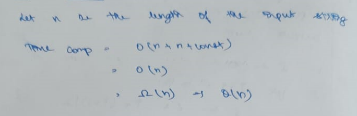 Let n be the length of the input string
Time comp = O(n + n + const)
= O(n)
, Ω(n) → θ(n)